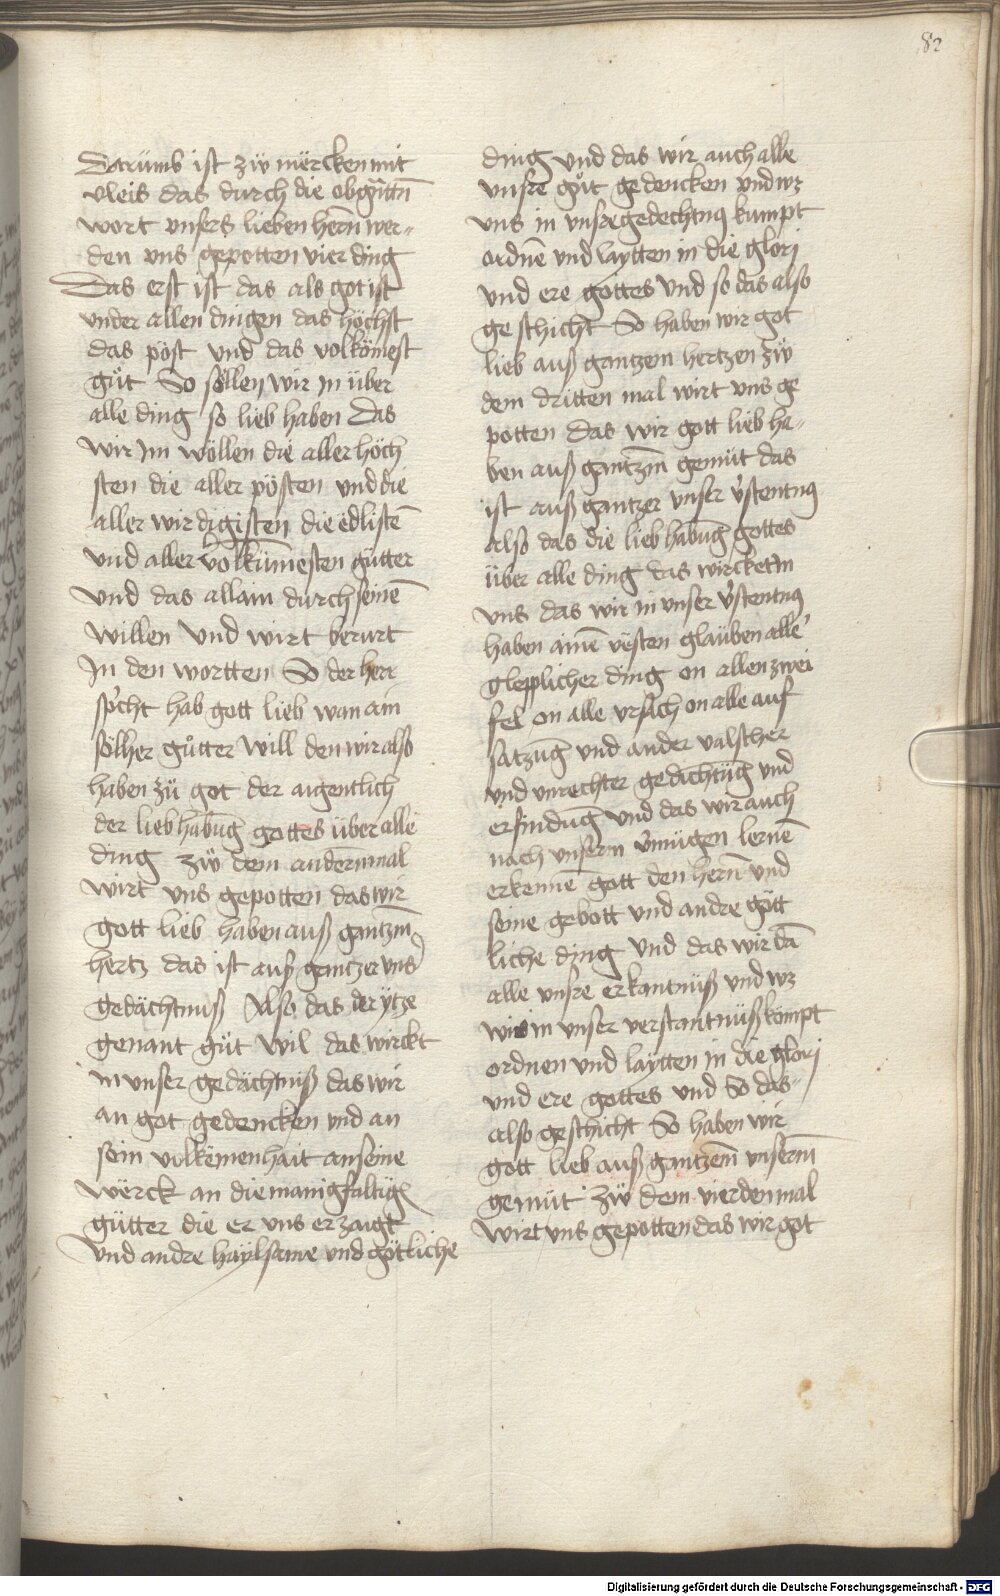 82
Darümb ist zü mërcken mit
vleis das durch die obgũttñ
wort vnsers lieben herñ wer-
den vns gepotten vier ding
Das erst ist das als got ist
vnder allen dingen das höchst
das pöst vnd das volkömest
gůt So söllen wir jn über
alle ding so lieb haben Das
wir Jm wöllen die aller höch
sten die aller pösten vnd die
aller wirdigisten die ëdlistē
vnd aller volkūmesten gütter
vnd das allain durch seinē
willen Vnd wirt berurt
Jn den wortten So der herr
sp̓cht hab gott lieb wan ain
sölher gůtter will den wir also
haben zü got der aigentlich
der liebhabūg gottes über alle
ding zw̋ dem andern mal
wirt vns gepotten das wir
gott lieb haben auß gantzm̄
hertz das ist auß gantzer vns̓
gedächtnuß Also das der ytze
genant gůt wil das wirckt
in vnser gedächtniß das wir
an got gedencken vnd an
sein volkömenhait an seine
wërck an die manigfaltigē
gütter die er vns erzaigt
vnd andre haylsame vnd götliche
ding vnd das wir auch alle
vnsre gůt gedencken vnd wz
vns in vnsre gedechtnꝰ kumpt
ordnē vnd laytten in die glori
vnd ere gottes vnd so das also
geschicht So haben wir got
lieb auß gantzem hertzen zw̋
dem dritten mal wirt vns ge
potten das wir gott lieb ha-
ben auß gantzm̄ gemüt das
ist auß gantzer vnser v̓stentnꝰ
also das die lieb habūg gottes
über alle ding das wircket in
vns das wir in vnser v̓stentnꝰ
haben ainē vësten glauben alle̓
glepplicher ding on allen zwei
fel on alle vrsach on alle auf
satzūg vnd ander valscher
vnd vnrechter gedächtüg vnd
erfindūg vnd das wir auch
nach vnserm v̓mügen lernē
erkennē gott den herñ vnd
seine gebott vnd andre gött
liche ding vnd das wir dā
alle vnsre erkantnüß vnd wz
wir in vnser verstantnüß kömpt
ordnen vnd laytten in die glori
vnd ere gottes vnd So das-
also geschicht So haben wir
gott lieb auß gantzem̄ vnserm̄
gemüt zw̋ dem vierden mal
wirt vns gepotten das wir got
Digitalisierung gefördert durch die Deutsche Forschungsgemeinschaft - DFG